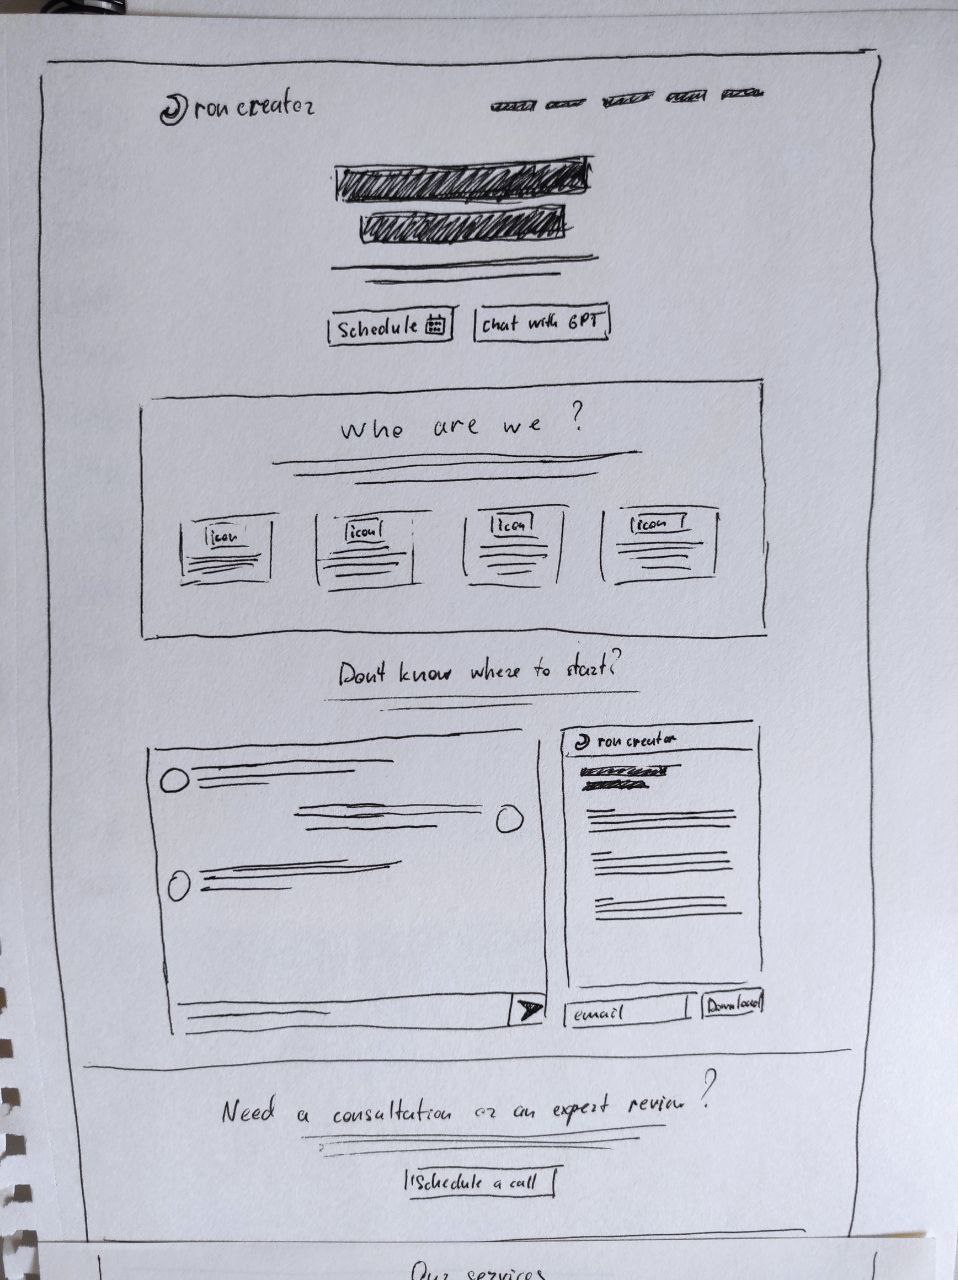 roncreator
Schedule
Chat with GPT
Who are we ?
icon
icon
icon
icon
Don't know where to start?
roncreator
email
Download
Need a consultation or an expert review ?
Schedule a call
Our services